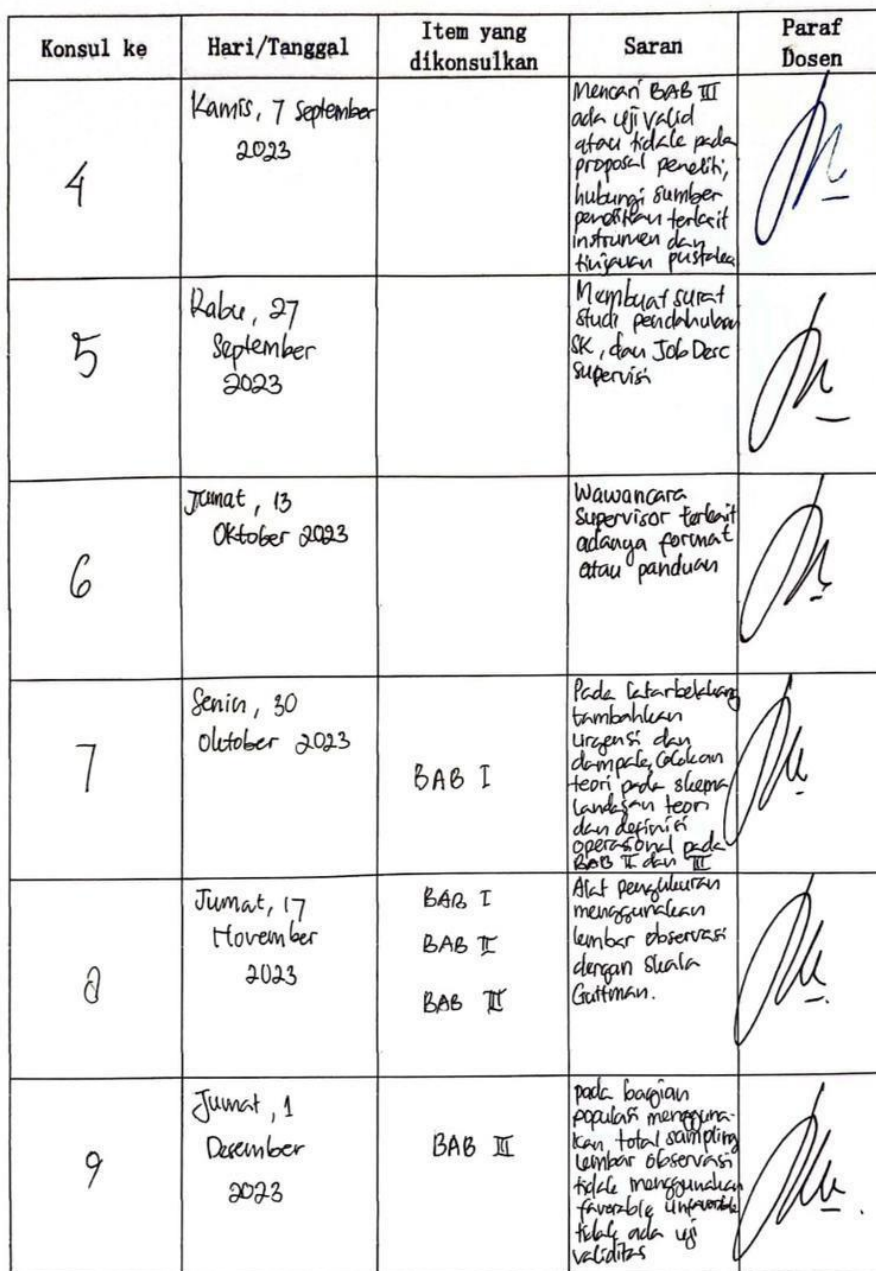 Konsul ke
Hari/Tanggal
Item yang
dikonsulkan
Saran
Paraf
Dosen
4
Kamis, 7 September
2023
Mencari BAB III
ada uji valid
atau tidak pada
proposal peneliti,
hubungi sumber
penelitian terkait
instrumen dan
tinjauan pustaka
5
Rabu, 27
September
2023
Membuat surat
studi pendahuluan
SK, dan Job Desc
supervisi
6
Jumat, 13
Oktober 2023
Wawancara
Supervisor terkait
adanya format
atau panduan
7
Senin, 30
Oktober 2023
BAB I
Pada latarbelakang
tambahkan
urgensi dan
dampak, cocokan
teori pada skema
landasan teori
dan definisi
operasional pada
BAB II dan III
8
Jumat, 17
November
2023
BAB I
BAB II
BAB III
Alat pengukuran
menggunakan
lembar observasi
dengan skala
Guttman.
9
Jumat, 1
Desember
2023
BAB III
pada bagian
populasi mengguna-
kan total sampling
lembar observasi
tidak menggunakan
favorable unfavorable
tidak ada uji
validitas